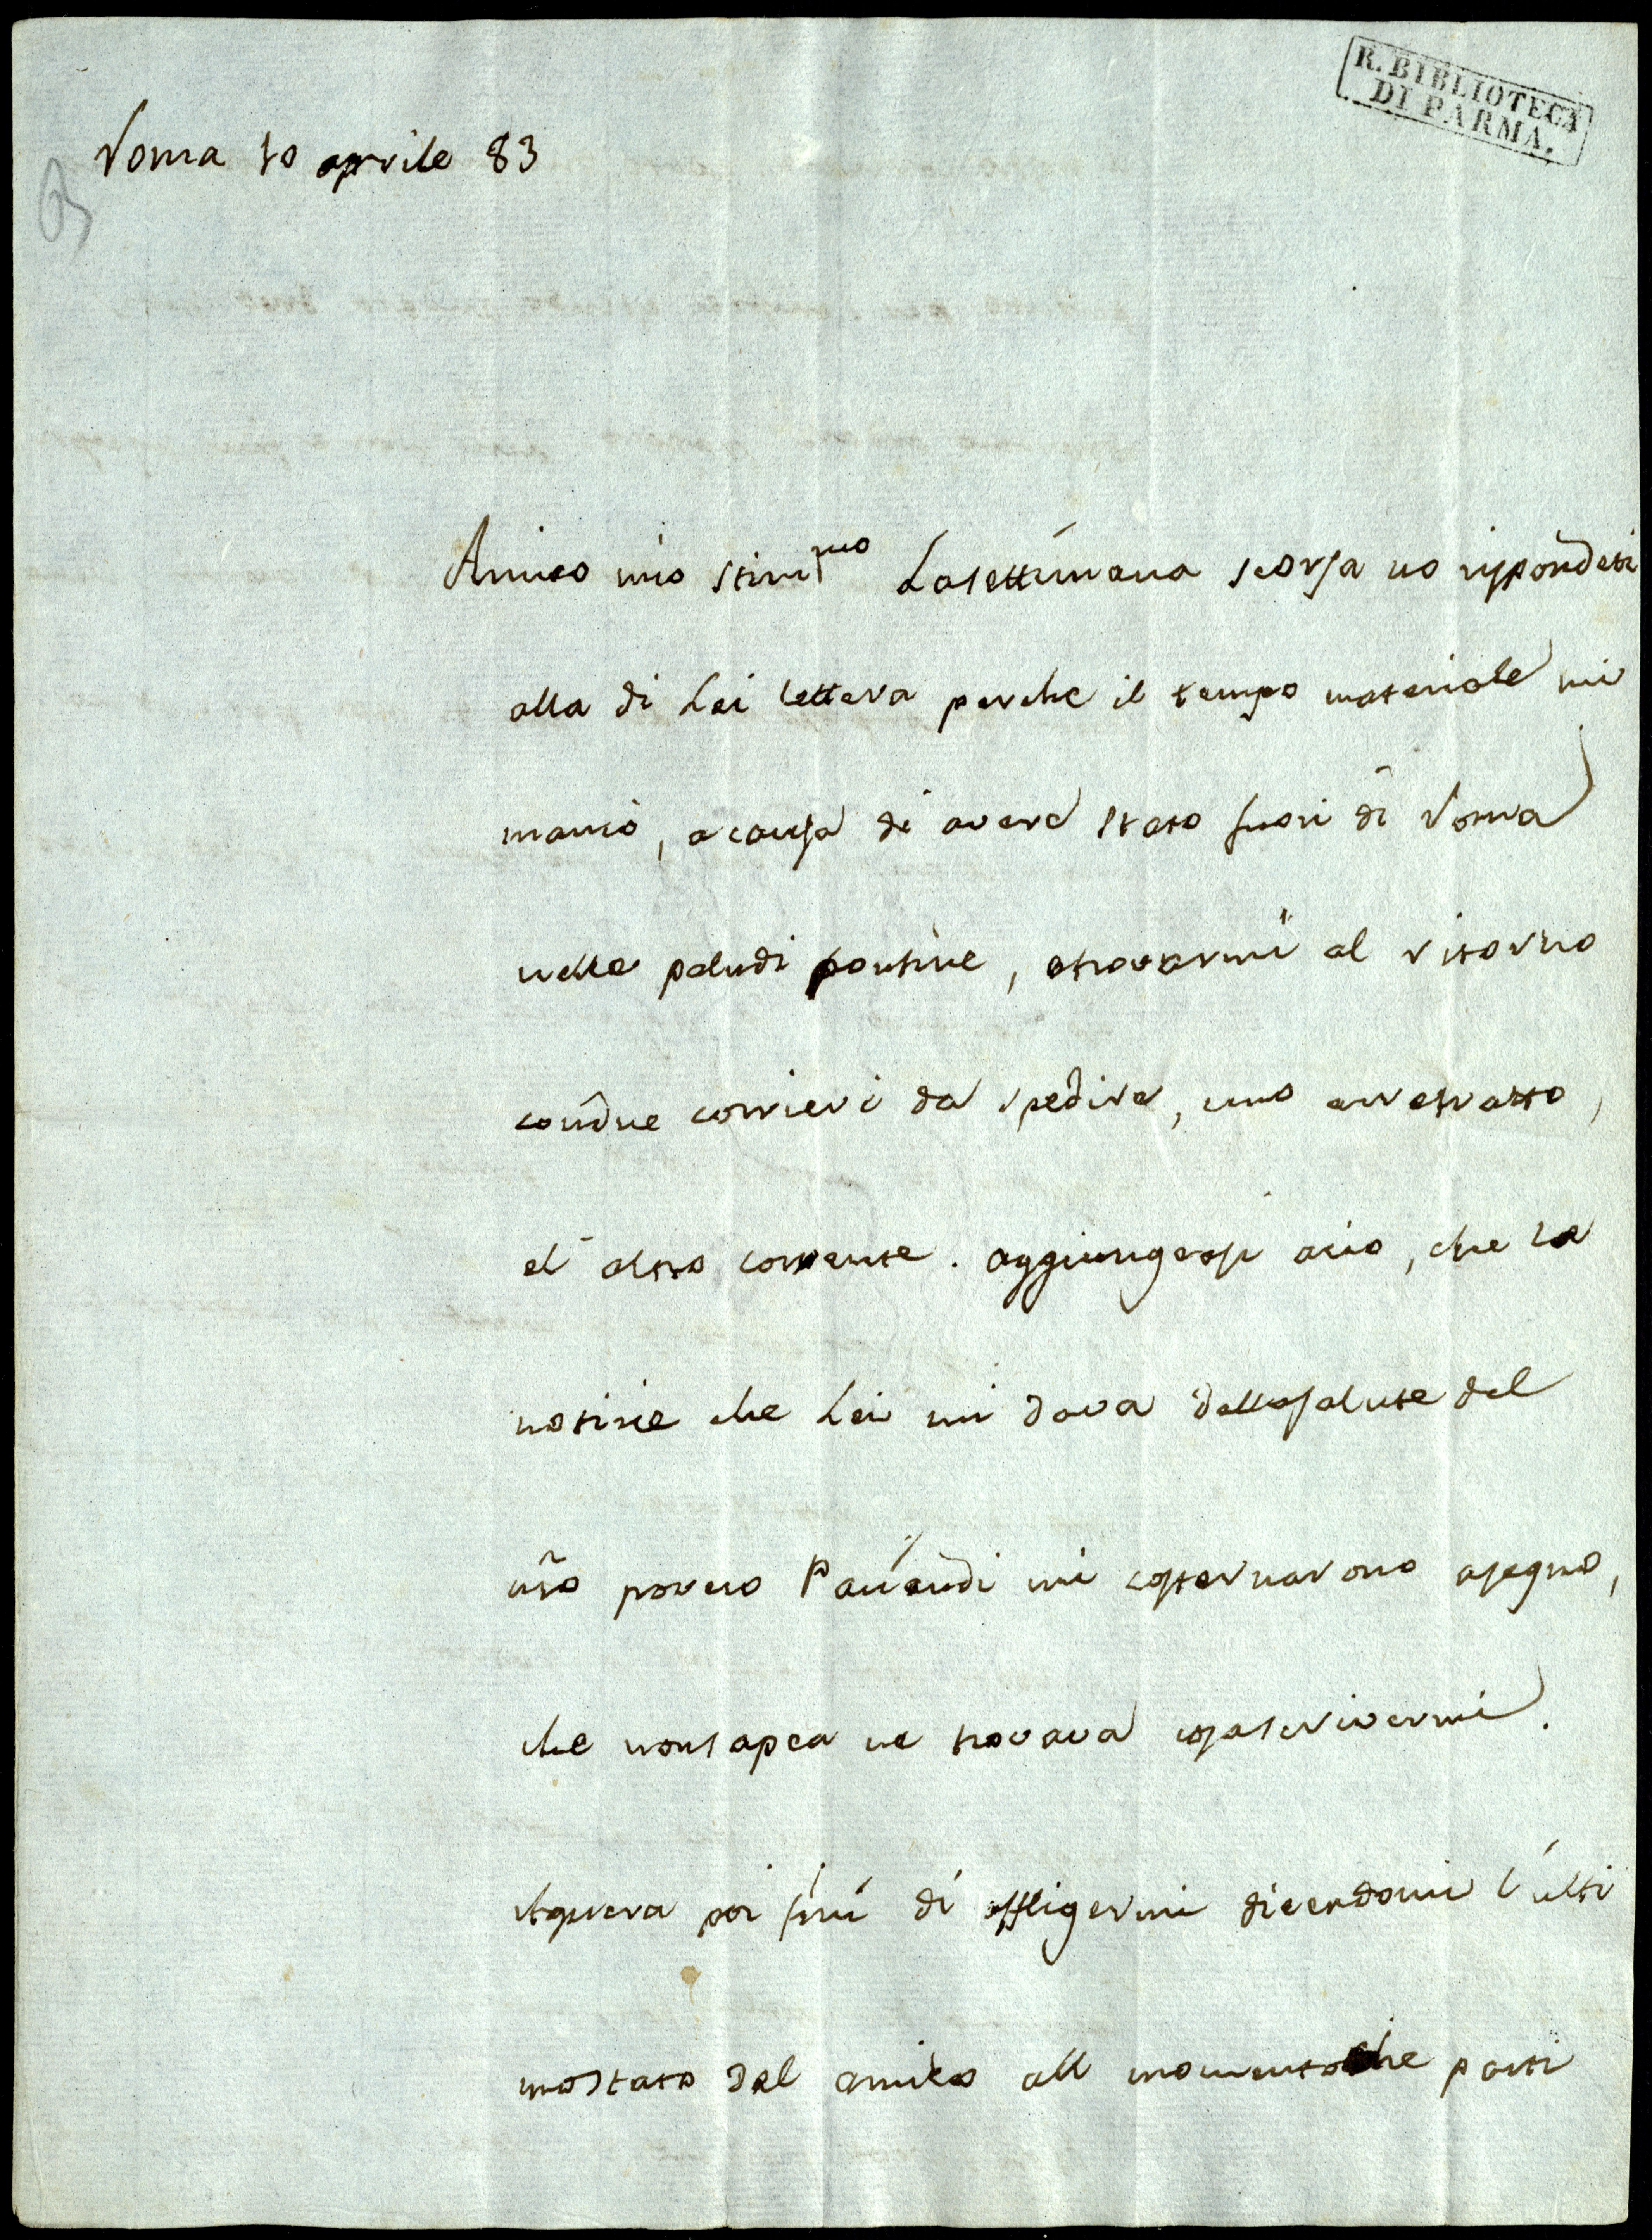 R. BIBLIOTECA
DI PARMA.
Roma 10 aprile 83
Amico mio stimmo La settimana scorsa no rispondeti
alla di Lei lettera perche il tempo materiale mi
mancò, a causa di avere stato fuori di Roma
nelle paludi pontine, e trovarmi al ritorno
con due corrieri da spedire, uno arretratto,
el' altro corrente. aggiungesi acio, che la
notizie che Lei mi dava della salute del
ñro povero Paciaudi mi costernarono a segno,
che non sapea ne trovava cosa scrivermi.
di affligermi dicendomi l'ulti
mo stato del amico all momento che parti